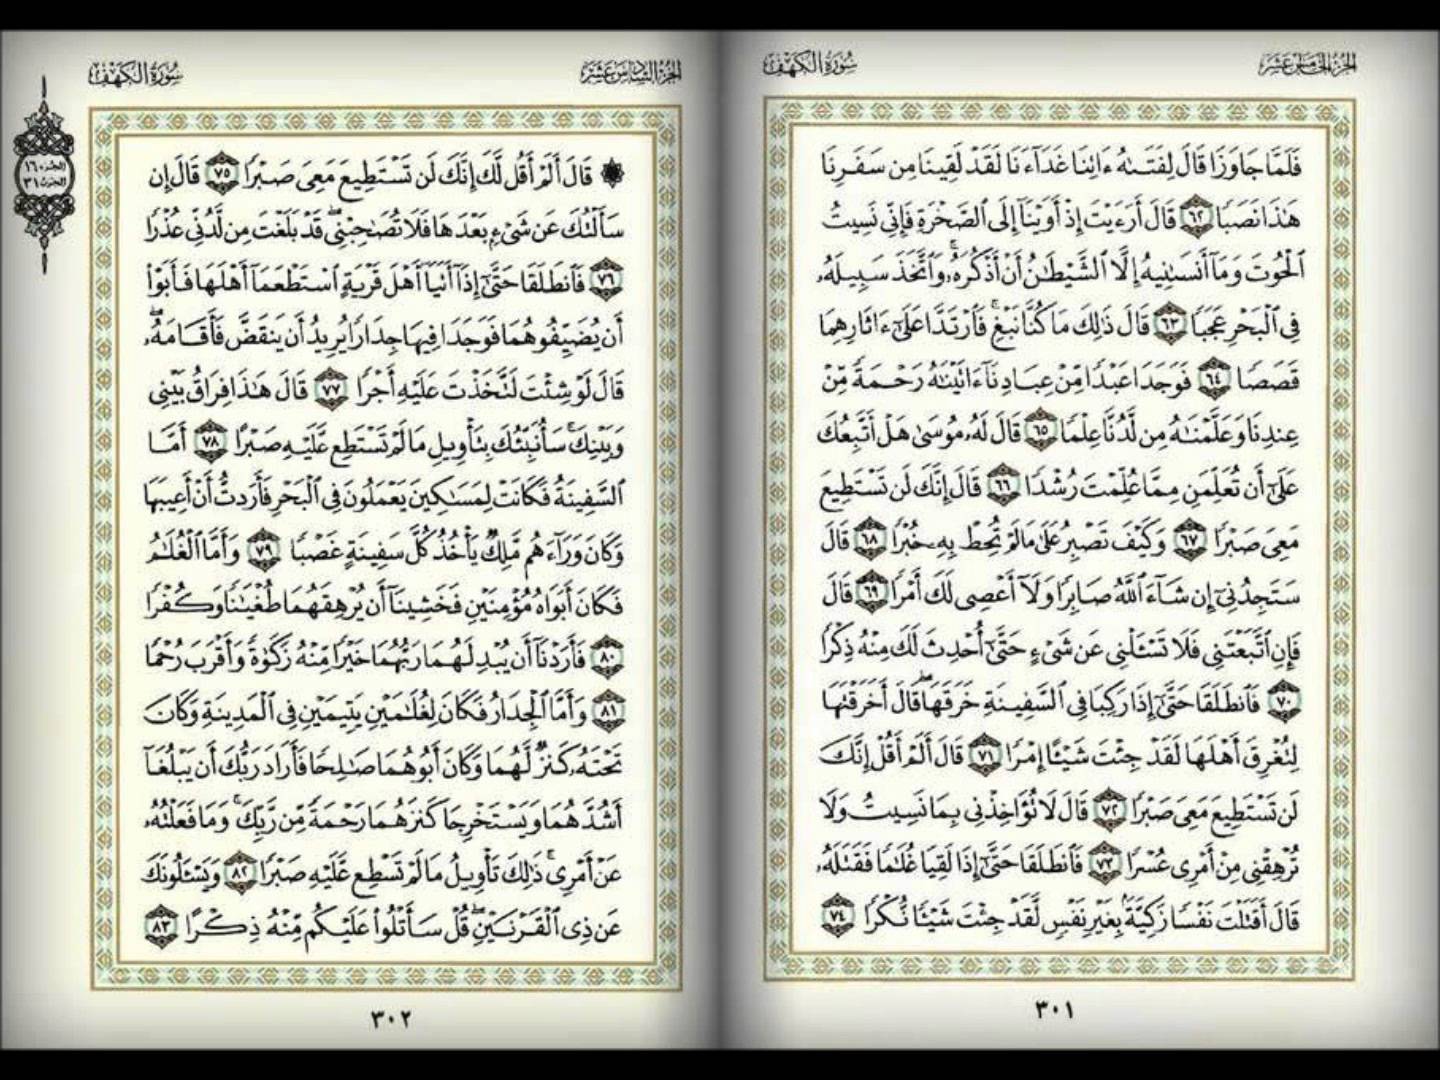 الجزء الخامس عشر
سورة الكهف
فَلَمَّا جَاوَزَا قَالَ لِفَتَىٰهُ ءَاتِنَا غَدَآءَنَا لَقَدْ لَقِينَا مِن سَفَرِنَا
هَٰذَا نَصَبًا ٦٢ قَالَ أَرَءَيْتَ إِذْ أَوَيْنَآ إِلَى ٱلصَّخْرَةِ فَإِنِّى نَسِيتُ
ٱلْحُوتَ وَمَآ أَنسَىٰنِيهُ إِلَّا ٱلشَّيْطَٰنُ أَنْ أَذْكُرَهُۥۚ وَٱتَّخَذَ سَبِيلَهُۥ
فِى ٱلْبَحْرِ عَجَبًا ٦٣ قَالَ ذَٰلِكَ مَا كُنَّا نَبْغِۚ فَٱرْتَدَّا عَلَىٰٓ ءَاثَارِهِمَا
قَصَصًا ٦٤ فَوَجَدَا عَبْدًا مِّنْ عِبَادِنَآ ءَاتَيْنَٰهُ رَحْمَةً مِّنْ
عِندِنَا وَعَلَّمْنَٰهُ مِن لَّدُنَّا عِلْمًا ٦٥ قَالَ لَهُۥ مُوسَىٰ هَلْ أَتَّبِعُكَ
عَلَىٰٓ أَن تُعَلِّمَنِ مِمَّا عُلِّمْتَ رُشْدًا ٦٦ قَالَ إِنَّكَ لَن تَسْتَطِيعَ
مَعِىَ صَبْرًا ٦٧ وَكَيْفَ تَصْبِرُ عَلَىٰ مَا لَمْ تُحِطْ بِهِۦ خُبْرًا ٦٨ قَالَ
سَتَجِدُنِىٓ إِن شَآءَ ٱللَّهُ صَابِرًا وَلَآ أَعْصِى لَكَ أَمْرًا ٦٩ قَالَ
فَإِنِ ٱتَّبَعْتَنِى فَلَا تَسْـَٔلْنِى عَن شَىْءٍ حَتَّىٰٓ أُحْدِثَ لَكَ مِنْهُ ذِكْرًا
٧٠ فَٱنطَلَقَا حَتَّىٰٓ إِذَا رَكِبَا فِى ٱلسَّفِينَةِ خَرَقَهَاۖ قَالَ أَخَرَقْتَهَا
لِتُغْرِقَ أَهْلَهَا لَقَدْ جِئْتَ شَيْـًٔا إِمْرًا ٧١ قَالَ أَلَمْ أَقُلْ إِنَّكَ
لَن تَسْتَطِيعَ مَعِىَ صَبْرًا ٧٢ قَالَ لَا تُؤَاخِذْنِى بِمَا نَسِيتُ وَلَا
تُرْهِقْنِى مِنْ أَمْرِى عُسْرًا ٧٣ فَٱنطَلَقَا حَتَّىٰٓ إِذَا لَقِيَا غُلَٰمًا فَقَتَلَهُۥ
قَالَ أَقَتَلْتَ نَفْسًا زَكِيَّةًۢ بِغَيْرِ نَفْسٍ لَّقَدْ جِئْتَ شَيْـًٔا نُّكْرًا ٧٤
٣٠١
الجزء السادس عشر
سورة الكهف
الجزء ١٦
الحزب ٣١
۞ قَالَ أَلَمْ أَقُل لَّكَ إِنَّكَ لَن تَسْتَطِيعَ مَعِىَ صَبْرًا ٧٥ قَالَ إِن
سَأَلْتُكَ عَن شَىْءٍۭ بَعْدَهَا فَلَا تُصَٰحِبْنِىۖ قَدْ بَلَغْتَ مِن لَّدُنِّى عُذْرًا
٧٦ فَٱنطَلَقَا حَتَّىٰٓ إِذَآ أَتَيَآ أَهْلَ قَرْيَةٍ ٱسْتَطْعَمَآ أَهْلَهَا فَأَبَوْا۟
أَن يُضَيِّفُوهُمَا فَوَجَدَا فِيهَا جِدَارًا يُرِيدُ أَن يَنقَضَّ فَأَقَامَهُۥۖ
قَالَ لَوْ شِئْتَ لَتَّخَذْتَ عَلَيْهِ أَجْرًا ٧٧ قَالَ هَٰذَا فِرَاقُ بَيْنِى
وَبَيْنِكَۚ سَأُنَبِّئُكَ بِتَأْوِيلِ مَا لَمْ تَسْتَطِع عَّلَيْهِ صَبْرًا ٧٨ أَمَّا
ٱلسَّفِينَةُ فَكَانَتْ لِمَسَٰكِينَ يَعْمَلُونَ فِى ٱلْبَحْرِ فَأَرَدتُّ أَنْ أَعِيبَهَا
وَكَانَ وَرَآءَهُم مَّلِكٌ يَأْخُذُ كُلَّ سَفِينَةٍ غَصْبًا ٧٩ وَأَمَّا ٱلْغُلَٰمُ
فَكَانَ أَبَوَاهُ مُؤْمِنَيْنِ فَخَشِينَآ أَن يُرْهِقَهُمَا طُغْيَٰنًا وَكُفْرًا
٨٠ فَأَرَدْنَآ أَن يُبْدِلَهُمَا رَبُّهُمَا خَيْرًا مِّنْهُ زَكَوٰةً وَأَقْرَبَ رُحْمًا
٨١ وَأَمَّا ٱلْجِدَارُ فَكَانَ لِغُلَٰمَيْنِ يَتِيمَيْنِ فِى ٱلْمَدِينَةِ وَكَانَ
تَحْتَهُۥ كَنزٌ لَّهُمَا وَكَانَ أَبُوهُمَا صَٰلِحًا فَأَرَادَ رَبُّكَ أَن يَبْلُغَآ
أَشُدَّهُمَا وَيَسْتَخْرِجَا كَنزَهُمَا رَحْمَةً مِّن رَّبِّكَۚ وَمَا فَعَلْتُهُۥ
عَنْ أَمْرِىۚ ذَٰلِكَ تَأْوِيلُ مَا لَمْ تَسْطِع عَّلَيْهِ صَبْرًا ٨٢ وَيَسْـَٔلُونَكَ
عَن ذِى ٱلْقَرْنَيْنِۖ قُلْ سَأَتْلُوا۟ عَلَيْكُم مِّنْهُ ذِكْرًا ٨٣
٣٠٢